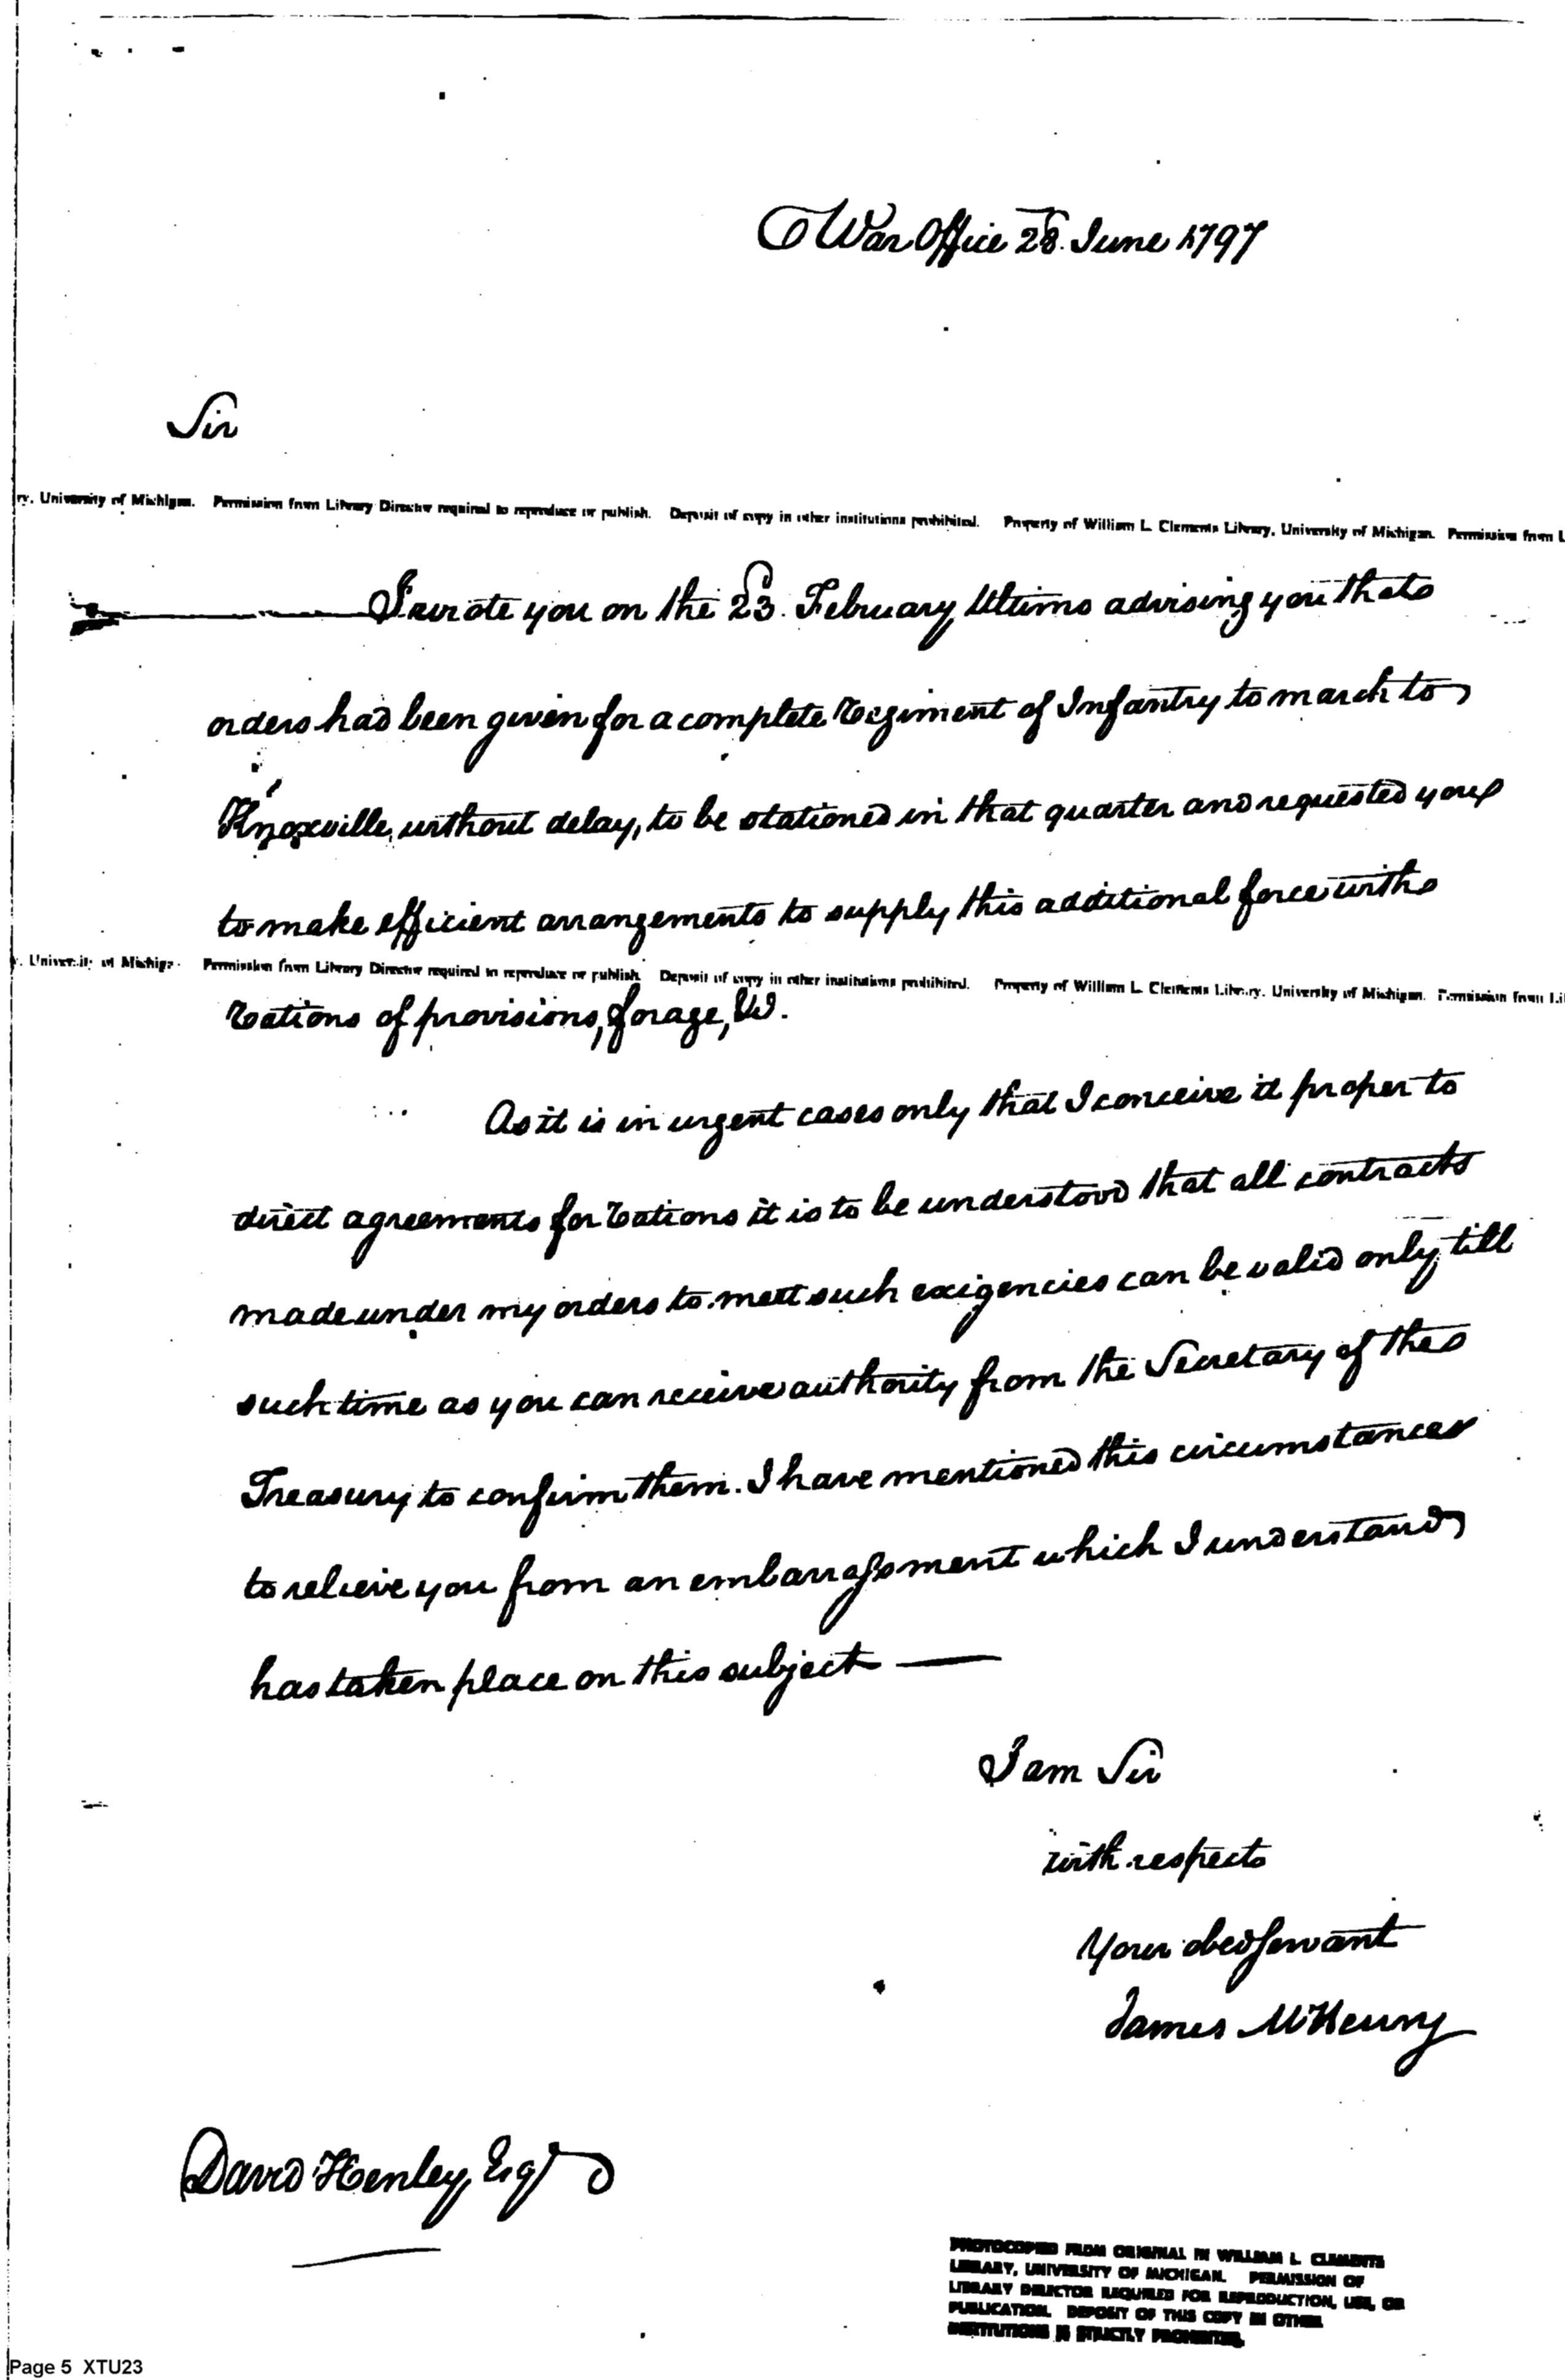 War Office 28. June 1797
Sir
ry, University of Michigan. Permission from Library Director required to reproduce or publish. Deposit of copy in other institutions prohibited. Property of William L. Clements Library, University of Michigan. Permission from L
I wrote you on the 23. February Ultimo advising you that
orders had been given for a complete regiment of Infantry to march to
Knoxville, without delay, to be stationed in that quarter and requested you
to make efficient arrangements to supply this additional force with
y. University of Michiga Permission from Library Director required to reproduce or publish. Deposit of copy in other institutions prohibited. Property of William L. Clements Library, University of Michigan. Permission from Li
rations of provisions, forage, &c.
As it is in urgent cases only that I conceive it proper to
direct agreements for rations it is to be understood that all contracts
made under my orders to meet such exigencies can be valid only till
such time as you can receive authority from the Secretary of the
Treasury to confirm them. I have mentioned this circumstance
to relieve you from an embarrassment which I understand
has taken place on this subject —
I am Sir
with respect
Your obed servant
James McHenry
David Henley Esqr
PHOTOCOPIED FROM ORIGINAL IN WILLIAM L. CLEMENTS
LIBRARY, UNIVERSITY OF MICHIGAN. PERMISSION OF
LIBRARY DIRECTOR REQUIRED FOR REPRODUCTION, USE, OR
PUBLICATION. DEPOSIT OF THIS COPY IN OTHER
INSTITUTIONS IS STRICTLY PROHIBITED.
Page 5 XTU23